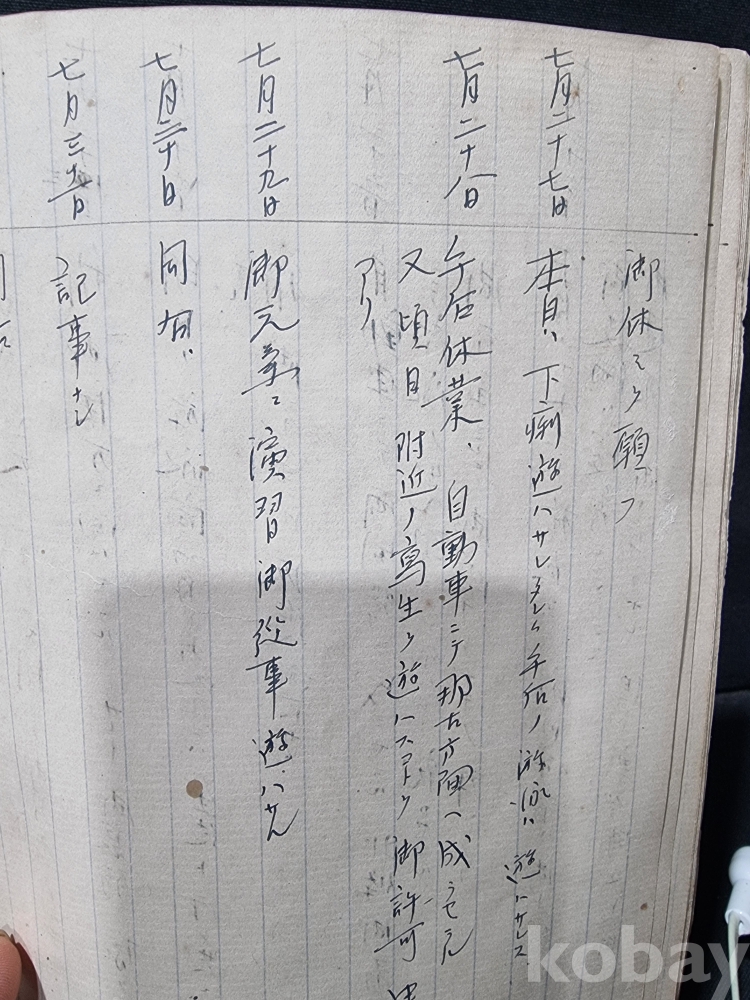 御休ミヲ願フ
七月二十七日 本日ハ下痢遊ハサレタレハ午后ノ游泳ハ遊ハサレス
七月二十八日 午后休業、自動車ニテ那古方面ヘ成ラセラル
又頃日附近ノ寫生ヲ遊ハスコトヲ御許可
アリ
七月二十九日 御元気ニ演習御従事遊ハサル
七月三十日 同右、
七月三十一日 記事ナシ
kobay